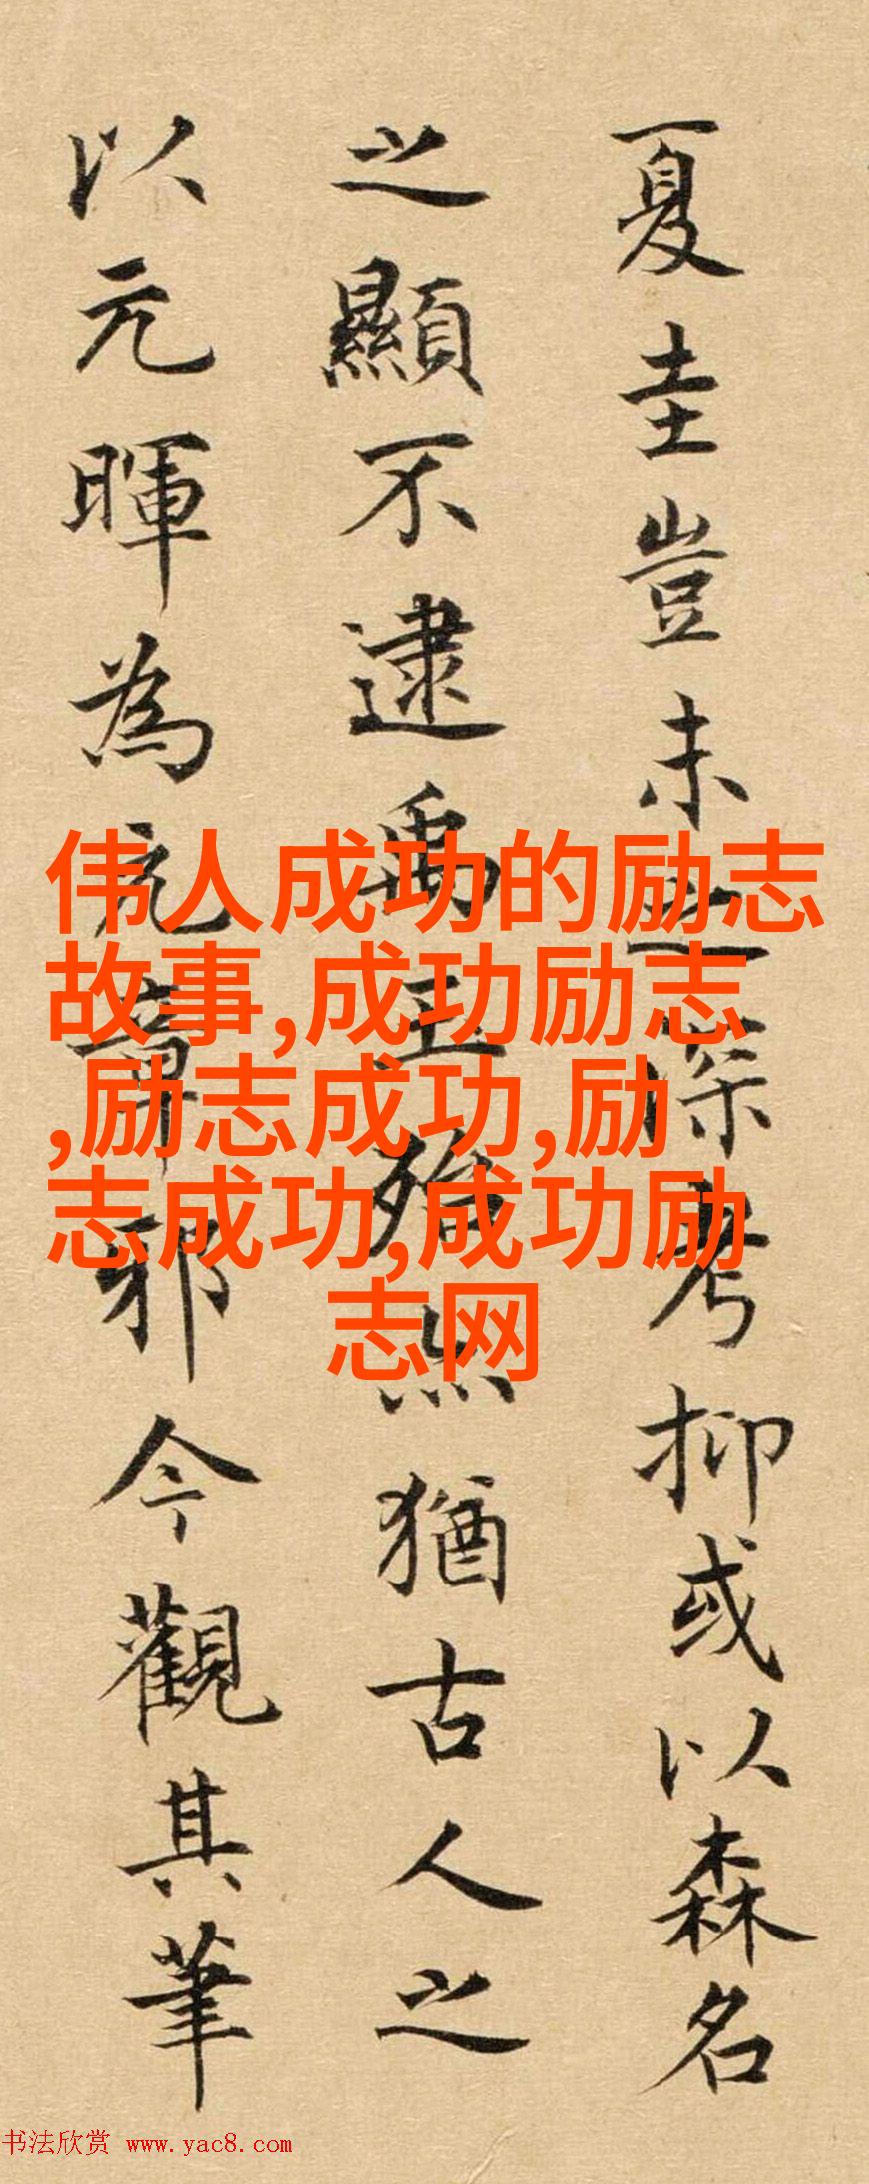 夏圭豈未之深考抑或以森名
之顯不逮禹玉殆然猶古人之
以元暉為元章邪今觀其筆
伟人成功的励志
故事,成功励志
,励志成功,励
志成功,成功励
志网
书法欣赏 www.yac8.com